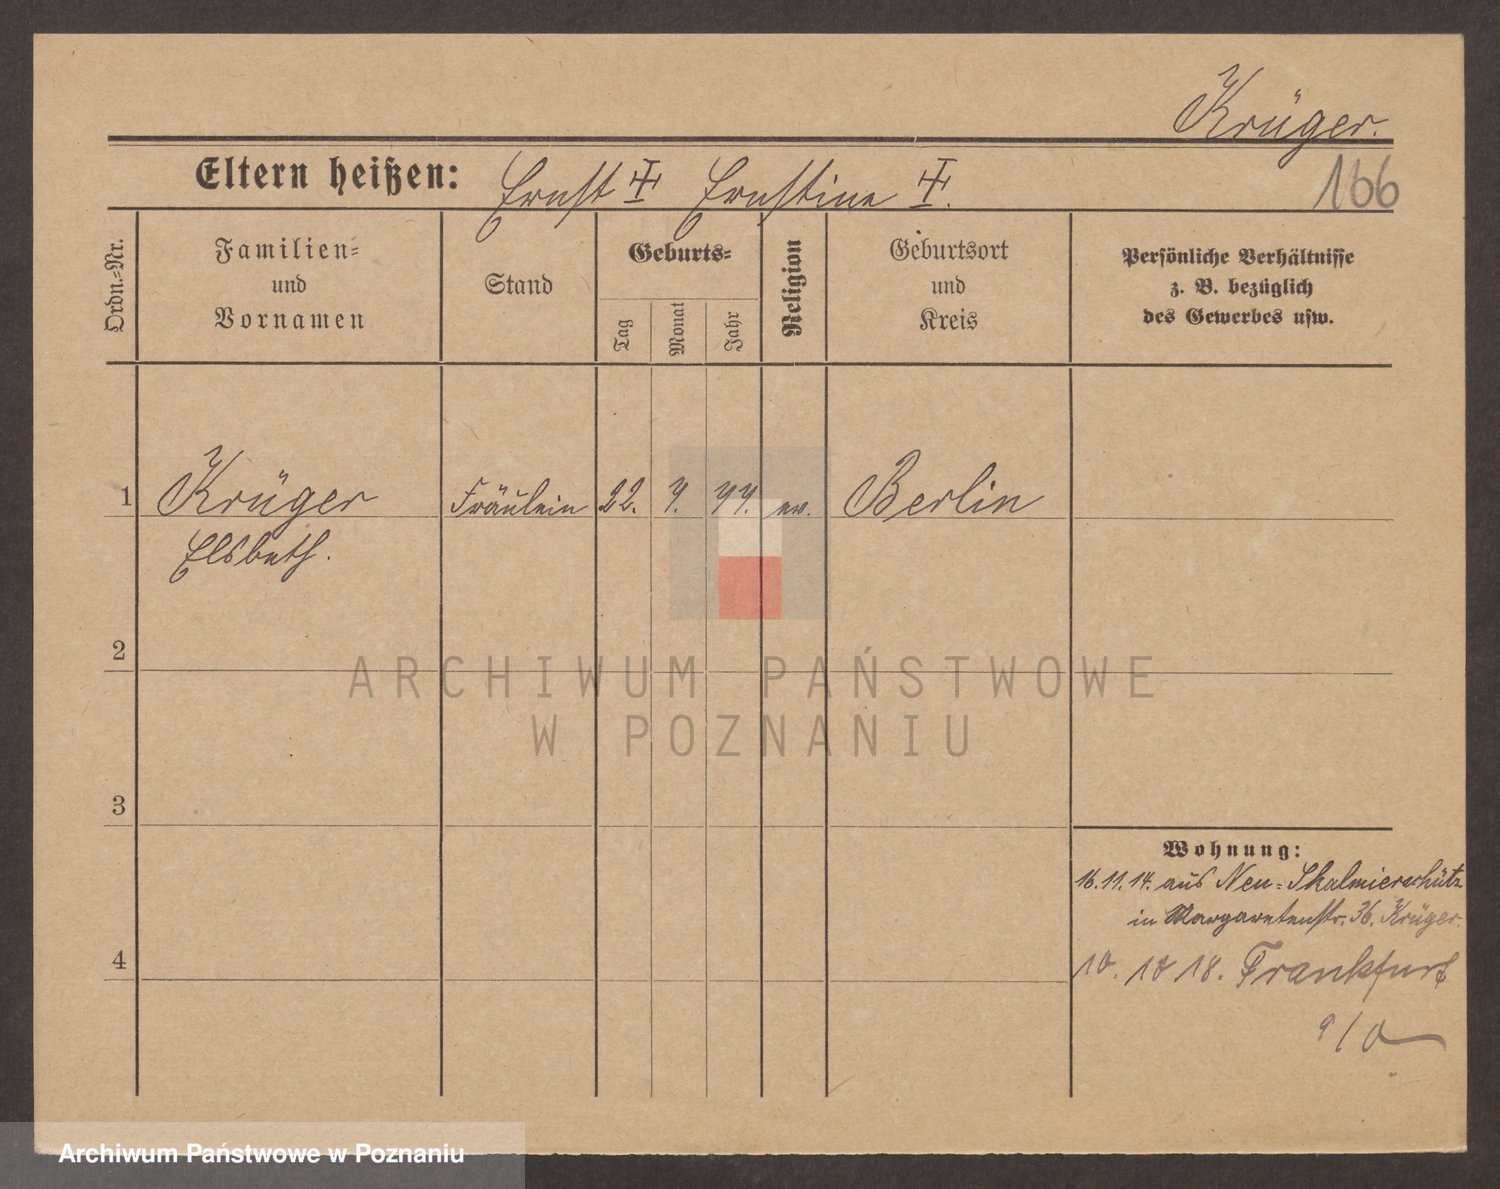 Krüger.
166
Eltern heißen: Ernst † Ernstine †.
Ordn.=Nr.
Familien=
und
Vornamen
Stand
Geburts=
Tag
Monat
Jahr
Religion
Geburtsort
und
Kreis
Persönliche Verhältnisse
z. B. bezüglich
des Gewerbes usw.
1 Krüger Fräulein 22. ev. Berlin
Elsbeth.
2
3
4
Wohnung:
16.11.14. aus Neu=Skalmierschütz
in Margaretenstr. 36. Krüger.
10. 10 18. Frankfurt
ARCHIWUM PAŃSTWOWE
W POZNANIU
Archiwum Państwowe w Poznaniu